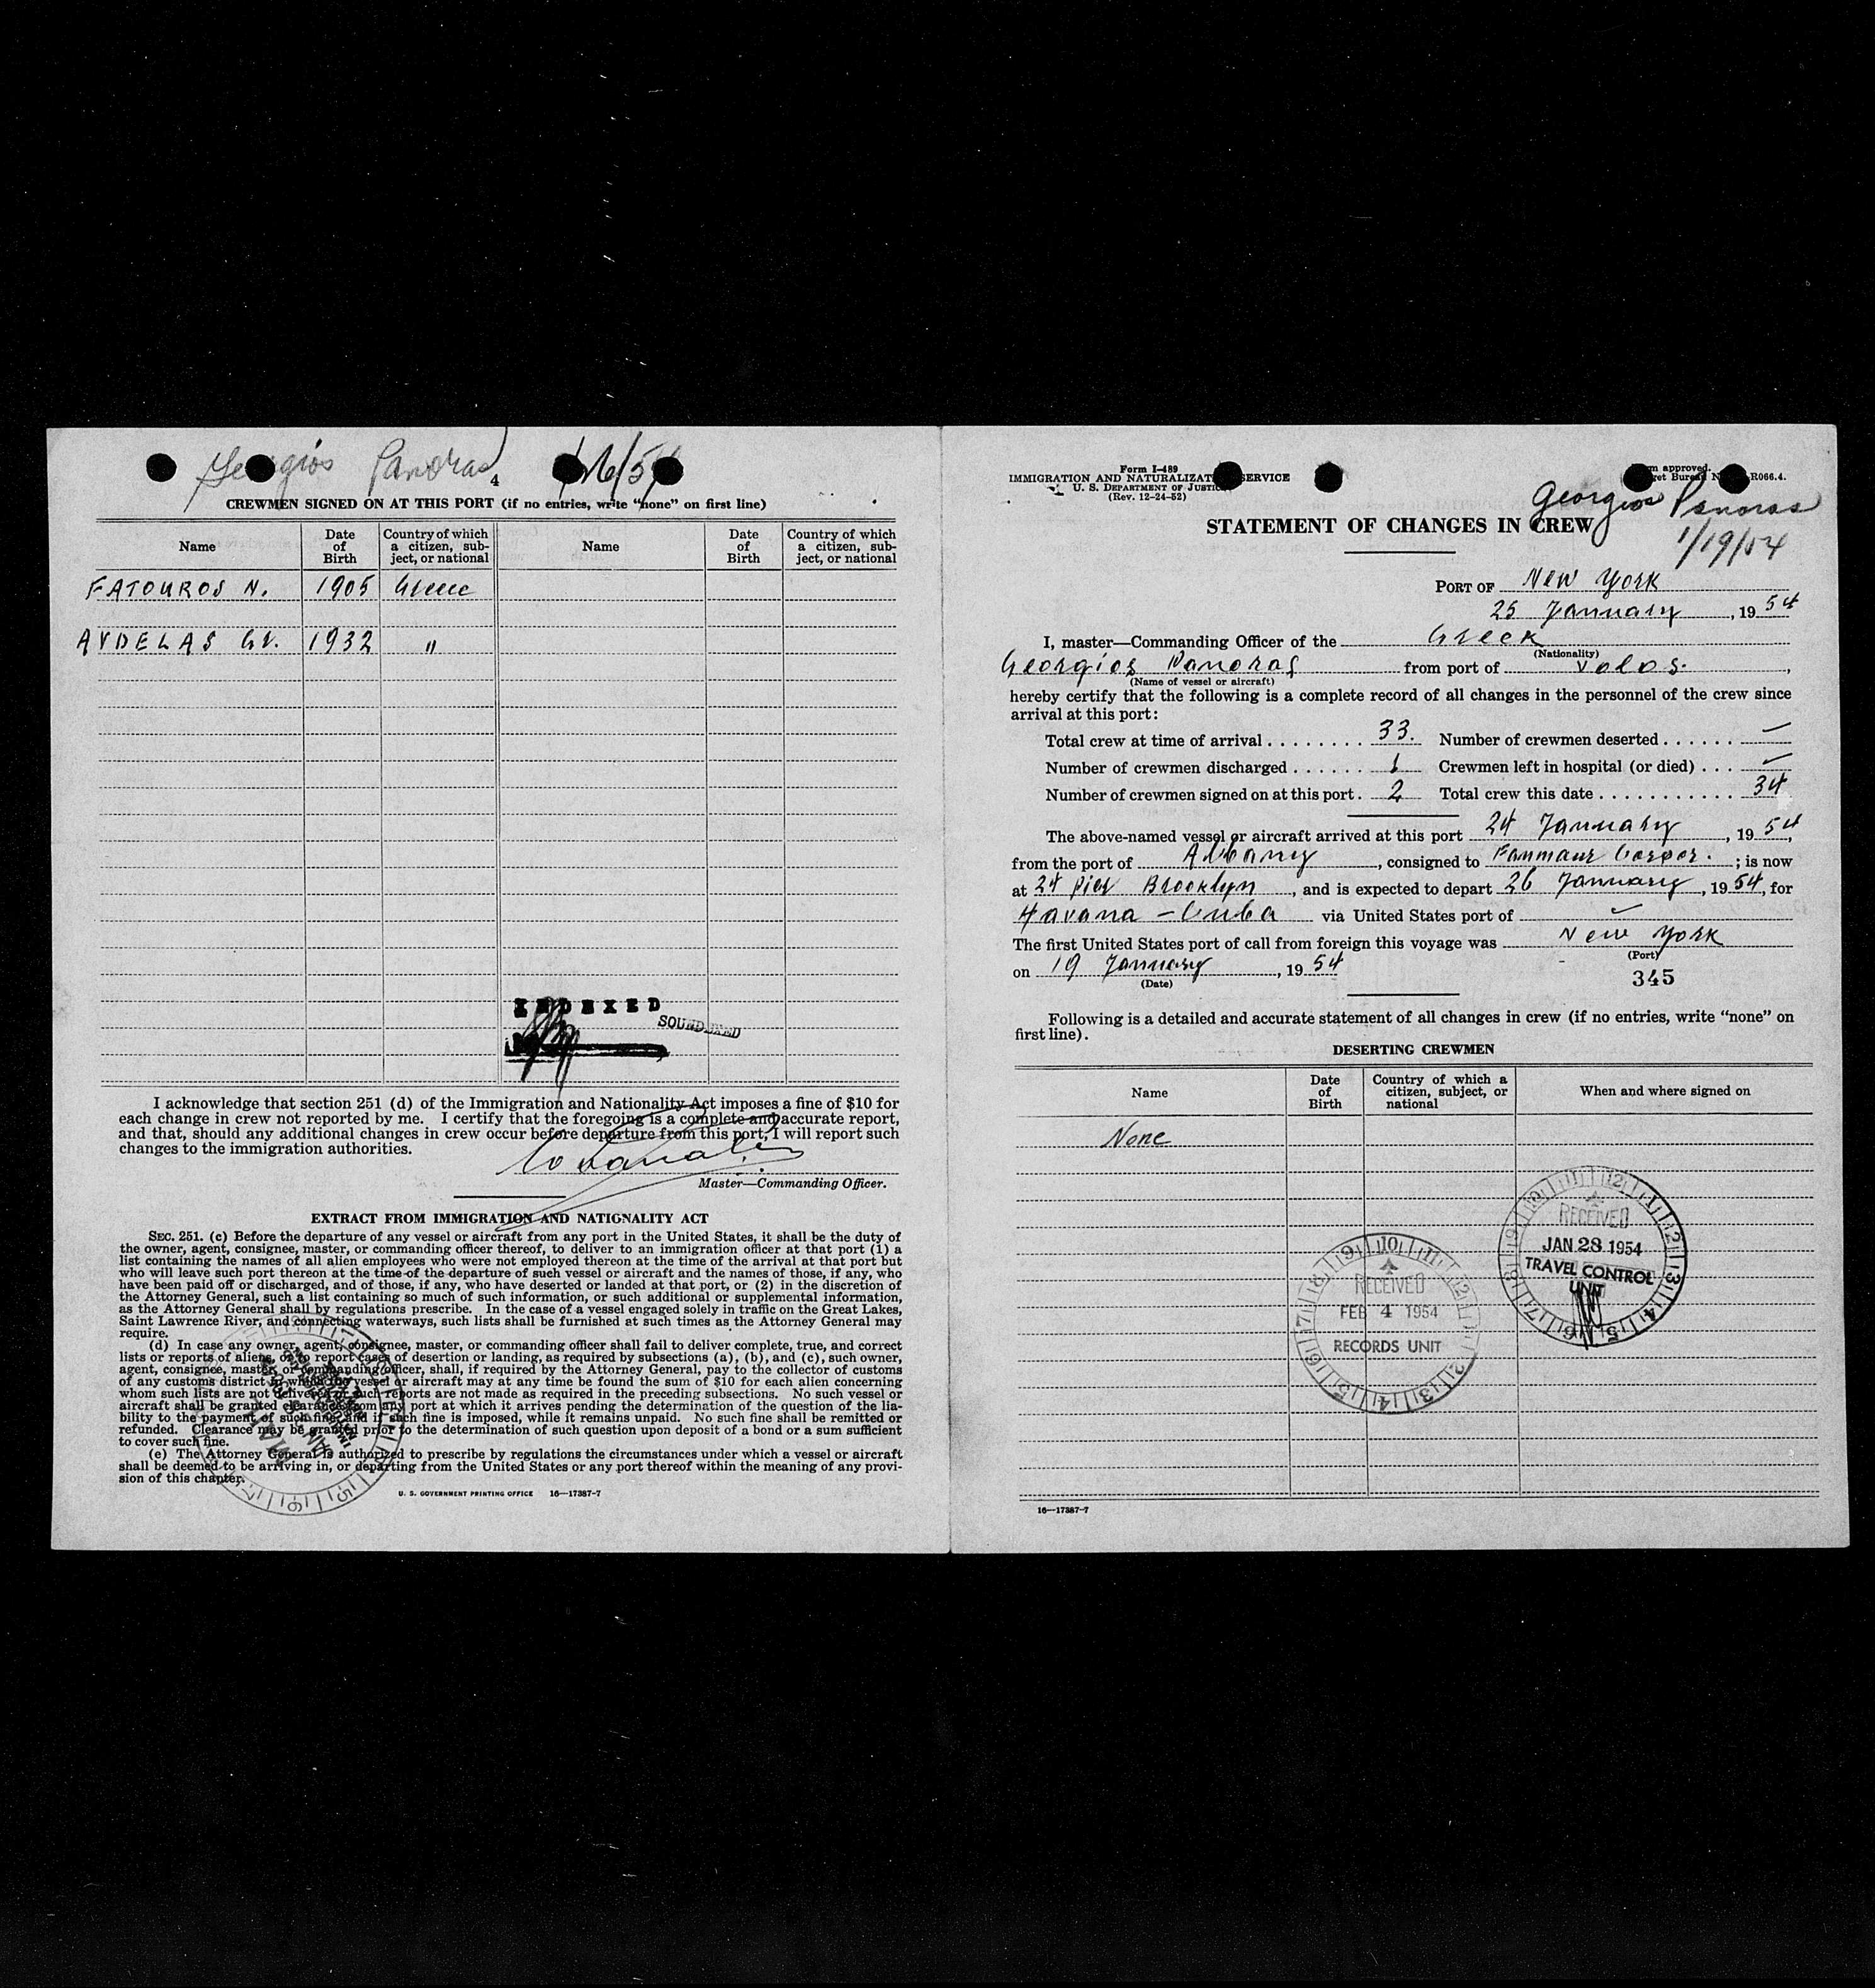 Georgios Panoras
4
CREWMEN SIGNED ON AT THIS PORT (if no entries, write “none” on first line)
Name
Date of Birth
Country of which a citizen, subject, or national
Name
Date of Birth
Country of which a citizen, subject, or national
FATOUROS N. 1905 Greece
AVDELAS G. 1932 "
INDEXED
SOUNDEXED
I acknowledge that section 251 (d) of the Immigration and Nationality Act imposes a fine of $10 for
each change in crew not reported by me. I certify that the foregoing is a complete and accurate report,
and that, should any additional changes in crew occur before departure from this port, I will report such
changes to the immigration authorities.
Master—Commanding Officer.
EXTRACT FROM IMMIGRATION AND NATIONALITY ACT
SEC. 251. (c) Before the departure of any vessel or aircraft from any port in the United States, it shall be the duty of
the owner, agent, consignee, master, or commanding officer thereof, to deliver to an immigration officer at that port (1) a
list containing the names of all alien employees who were not employed thereon at the time of the arrival at that port but
who will leave such port thereon at the time of the departure of such vessel or aircraft and the names of those, if any, who
have been paid off or discharged, and of those, if any, who have deserted or landed at that port, or (2) in the discretion of
the Attorney General, such a list containing so much of such information, or such additional or supplemental information,
as the Attorney General shall by regulations prescribe. In the case of a vessel engaged solely in traffic on the Great Lakes,
Saint Lawrence River, and connecting waterways, such lists shall be furnished at such times as the Attorney General may
require.
(d) In case any owner, agent, consignee, master, or commanding officer shall fail to deliver complete, true, and correct
lists or reports of aliens, or to report cases of desertion or landing, as required by subsections (a), (b), and (c), such owner,
agent, consignee, master, or commanding officer, shall, if required by the Attorney General, pay to the collector of customs
of any customs district in which the vessel or aircraft may at any time be found the sum of $10 for each alien concerning
whom such lists are not delivered or such reports are not made as required in the preceding subsections. No such vessel or
aircraft shall be granted clearance from any port at which it arrives pending the determination of the question of the lia-
bility to the payment of such fine, and if such fine is imposed, while it remains unpaid. No such fine shall be remitted or
refunded. Clearance may be granted prior to the determination of such question upon deposit of a bond or a sum sufficient
to cover such fine.
(e) The Attorney General is authorized to prescribe by regulations the circumstances under which a vessel or aircraft
shall be deemed to be arriving in, or departing from the United States or any port thereof within the meaning of any provi-
sion of this chapter.
U. S. GOVERNMENT PRINTING OFFICE 16—17387-7
Form I-489
IMMIGRATION AND NATURALIZATION SERVICE
U. S. DEPARTMENT OF JUSTICE
(Rev. 12-24-52)
approved.
R066.4.
Georgios Panoras
1/19/54
STATEMENT OF CHANGES IN CREW
PORT OF New York
25 January, 1954
I, master—Commanding Officer of the Greek
(Nationality)
Georgios Panoras from port of Volos.,
(Name of vessel or aircraft)
hereby certify that the following is a complete record of all changes in the personnel of the crew since
arrival at this port:
Total crew at time of arrival . . . . . . . . 33. Number of crewmen deserted . . . . . . —
Number of crewmen discharged . . . . . . 1 Crewmen left in hospital (or died) . . . —
Number of crewmen signed on at this port. 2 Total crew this date . . . . . . . . . . . 34
The above-named vessel or aircraft arrived at this port 24 January, 1954,
from the port of Albany, consigned to Fanmaur Corpor.; is now
at 24 Pier Brooklyn, and is expected to depart 26 January, 1954, for
Havana - Cuba via United States port of
The first United States port of call from foreign this voyage was New York
(Port)
on 19 January, 1954
(Date)
345
Following is a detailed and accurate statement of all changes in crew (if no entries, write “none” on
first line).
DESERTING CREWMEN
Name
Date of Birth
Country of which a citizen, subject, or national
When and where signed on
None
RECEIVED
JAN 28 1954
TRAVEL CONTROL
UNIT
RECEIVED
FEB 4 1954
RECORDS UNIT
16—17387-7